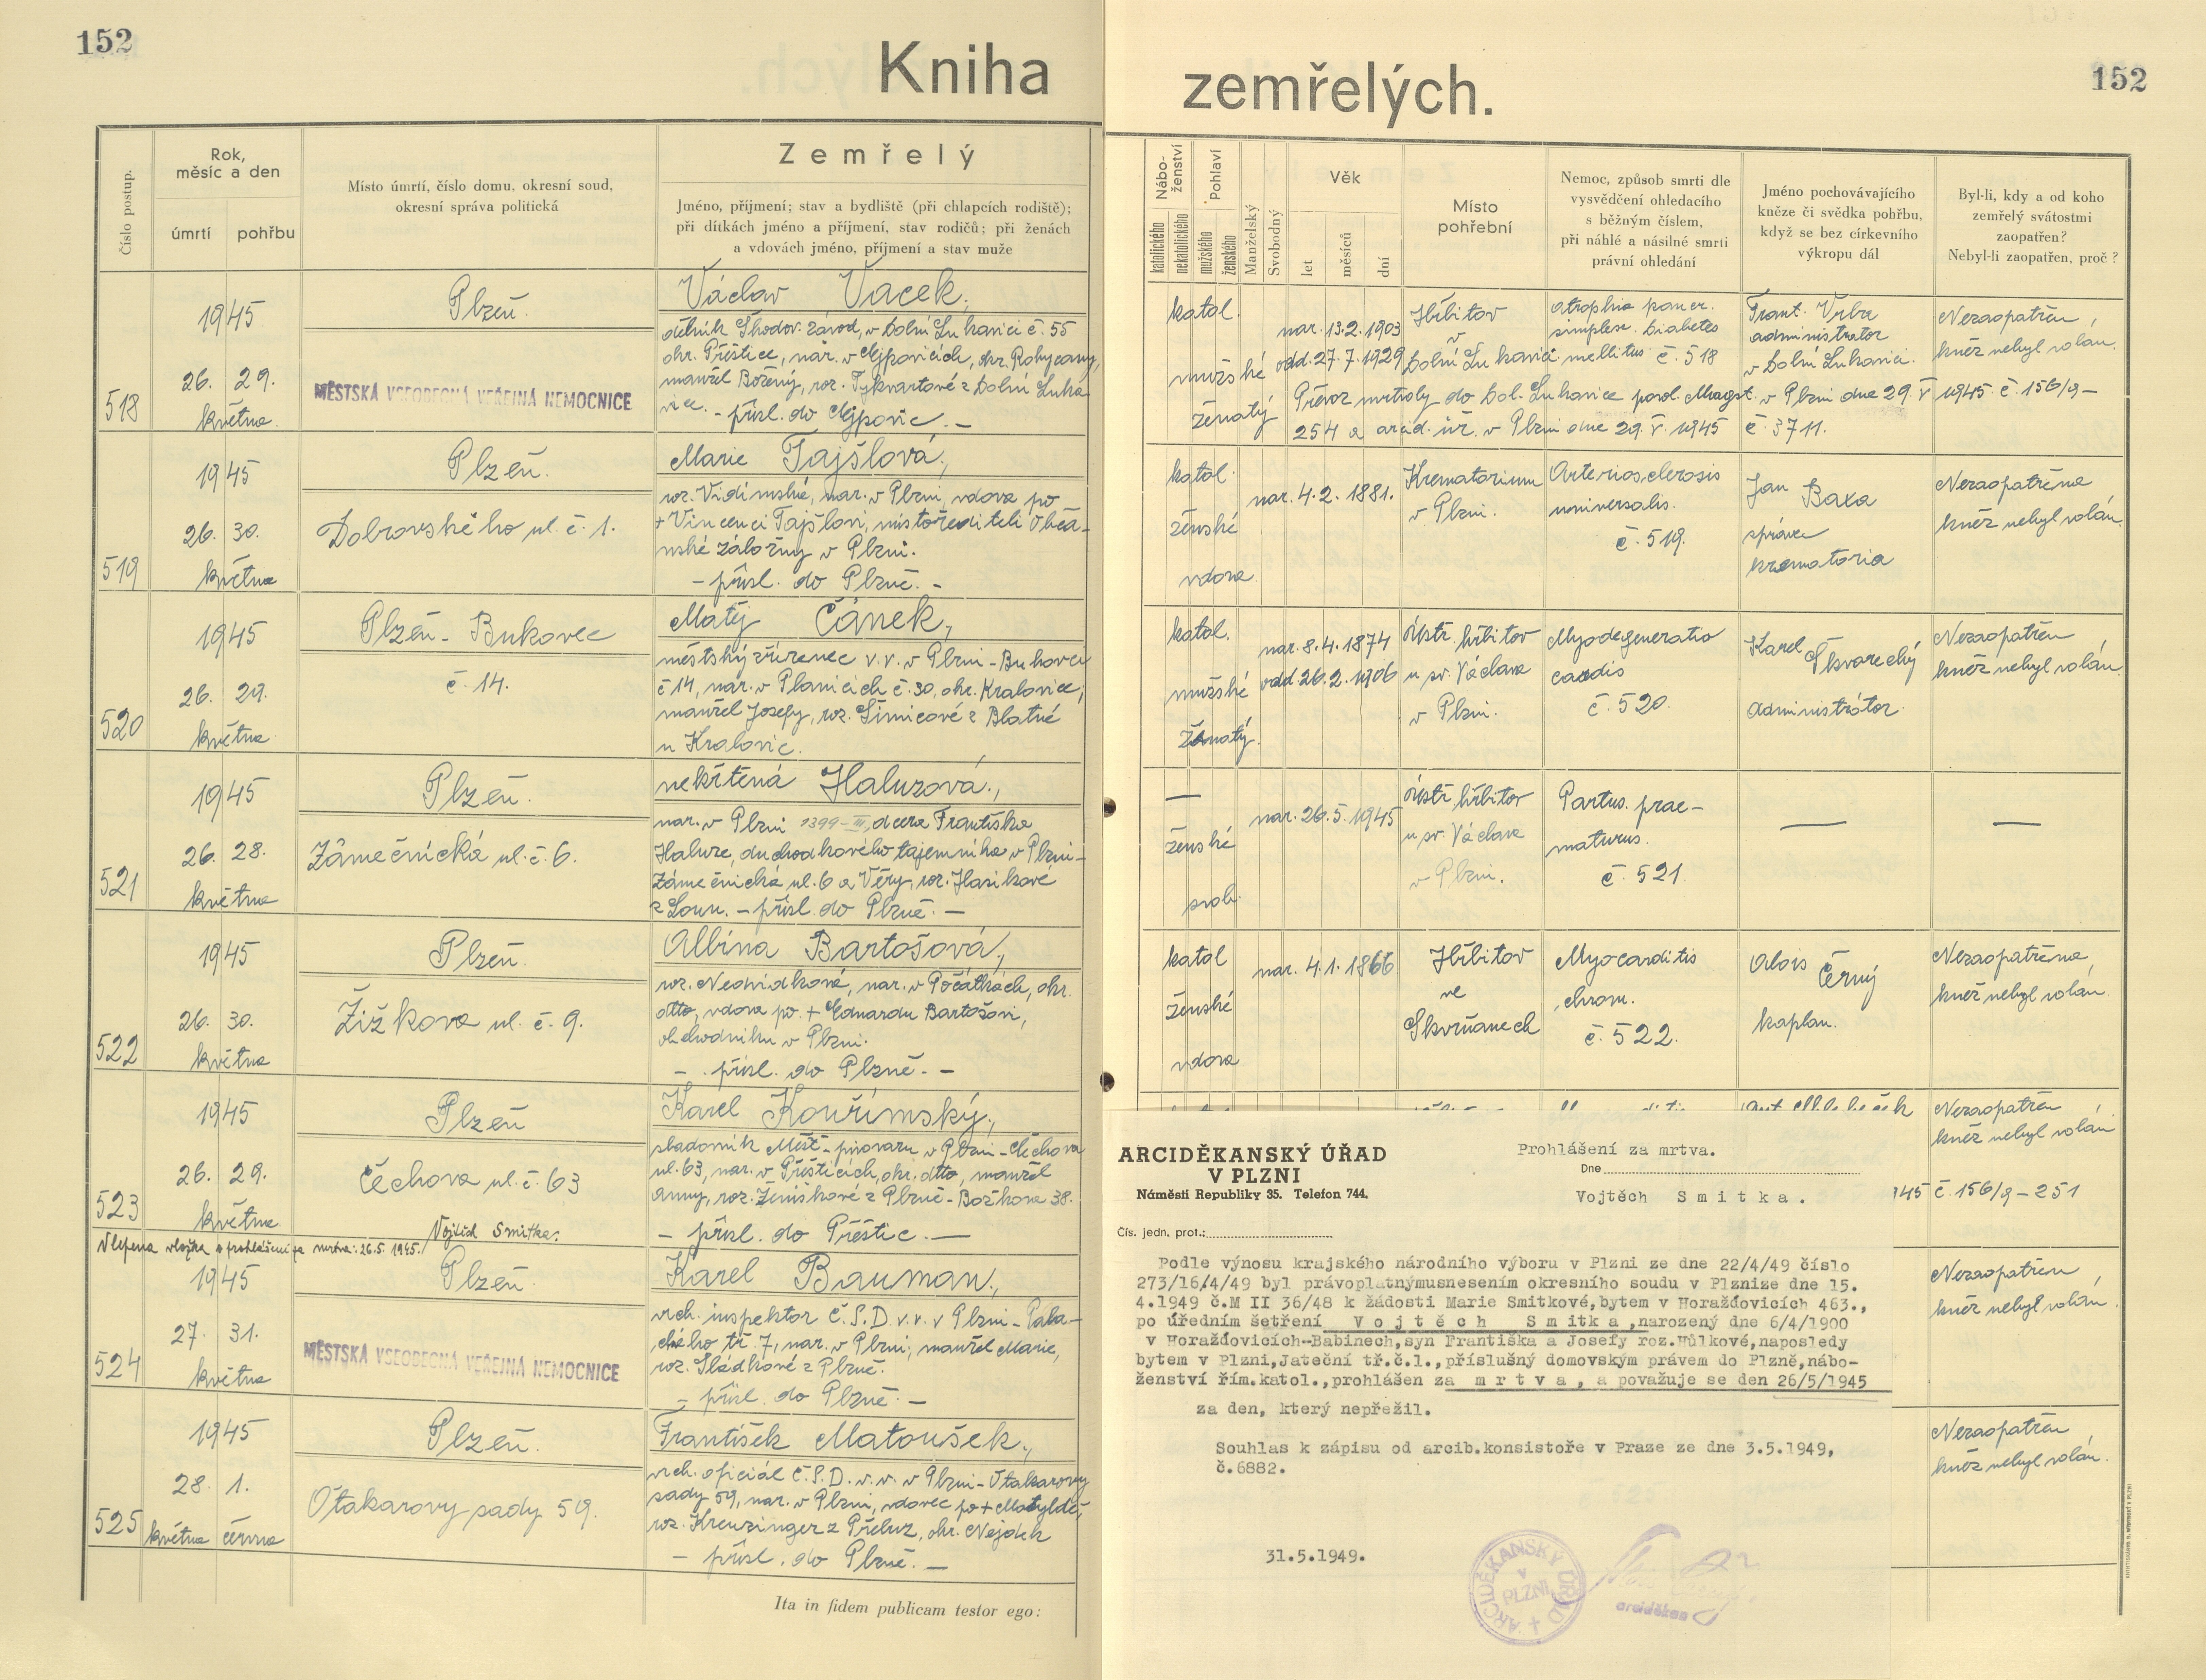 152
Kniha
zemřelých.
152
Číslo postup.
Rok,
měsíc a den
úmrtí
pohřbu
Místo úmrtí, číslo domu, okresní soud,
okresní správa politická
Zemřelý
Jméno, příjmení; stav a bydliště (při chlapcích rodiště);
při dítkách jméno a příjmení, stav rodičů; při ženách
a vdovách jméno, příjmení a stav muže
Nábo-
ženství
katolického
nekatolického
Pohlaví
mužského
ženského
Manželský
Svobodný
Věk
let
měsíců
dní
Místo
pohřební
Nemoc, způsob smrti dle
vysvědčení ohledacího
s běžným číslem,
při náhlé a násilné smrti
právní ohledání
Jméno pochovávajícího
kněze či svědka pohřbu,
když se bez církevního
výkropu dál
Byl-li, kdy a od koho
zemřelý svátostmi
zaopatřen?
Nebyl-li zaopatřen, proč?
518
1945
26. 29.
května
Plzeň.
MĚSTSKÁ VŠEOBECNÁ VEŘEJNÁ NEMOCNICE
Václav Vacek,
dělník Škodov. závod, v Dolní Lukavici č. 55
okr. Přeštice, nar. v Ejpovicích, okr. Rokycany,
manžel Boženy, roz. Tykvartové z Dolní Luka-
vice. – přísl. do Ejpovic. –
katol.
mužské
ženatý
nar. 13.2.1903
odd. 27.7.1929
Hřbitov
v
Dolní Lukavici
atrophia pancr.
simplex. Diabetes
mellitus č. 518
Frant. Vrba
administrator
v Dolní Lukavici.
Nezaopatřen,
kněz nebyl volán.
Převoz mrtvoly do Dol. Lukavice povol. Magst. v Plzni dne 29. V. 1945 č. 156/9–
254 a arcid. úř. v Plzni dne 29. V. 1945 č. 3711.
519
1945
26. 30.
května
Plzeň.
Dobrovského ul. č. 1.
Marie Tajšlová,
roz. Vidimská, nar. v Plzni, vdova po
+ Vincenci Tajšlovi, místořediteli Občan-
ské záložny v Plzni.
– přísl. do Plzně. –
katol.
ženské
vdova
nar. 4.2. 1881.
Krematorium
v Plzni.
Arteriosclerosis
universalis.
č. 519.
Jan Baxa
správce
krematoria
Nezaopatřena
kněz nebyl volán.
520
1945
26. 29.
května
Plzeň - Bukovec
č. 14.
Matěj Čánek,
městský zřízenec v. v. v Plzni - Bukovci
č 14, nar. v Planicích č. 30, okr. Kralovice,
manžel Josefy, roz. Šimicové z Blatné
u Kralovic.
katol.
mužské
ženatý.
nar. 8.4.1874
odd. 26.2.1906
ústř. hřbitov
u sv. Václava
v Plzni.
Myodegeneratio
cordis
č. 520.
Karel Škvarechý
administrátor
Nezaopatřen
kněz nebyl volán.
521
1945
26. 28.
května
Plzeň.
Zámečnická ul. č. 6.
nekřtěná Haluzová,
nar. v Plzni 1399-III, dcera Františka
Haluze, duchodkového tajemníka v Plzni-
Zámečnická ul. 6 a Věry, roz. Hasikové
z Loun. – přísl. do Plzně. –
—
ženské
svob.
nar. 26.5.1945
ústř. hřbitov
u sv. Václava
v Plzni.
Partus prae-
maturus.
č. 521.
—
—
522
1945
26. 30.
května
Plzeň.
Žižkova ul. č. 9.
Albina Bartošová,
roz. Neduidková, nar. v Počátkách, okr.
dtto, vdova po + Eduardu Bartošovi,
obchodníku v Plzni.
– přísl. do Plzně. –
katol
ženské
vdova
nar. 4.1. 1866
Hřbitov
ve
Skvrňanech
Myocarditis
chron.
č. 522.
Alois Černý
kaplan.
Nezaopatřena,
kněz nebyl volán.
523
1945
26. 29.
května
Plzeň
Čechova ul. č. 63
Karel Kouřimský,
sladovník Měšť. pivovaru v Plzni - Čechova
ul. 63, nar. v Přešticích, okr. dtto, manžel
Anny, roz. Ženíškové z Plzně - Božkova 38.
– přísl. do Přeštic. –
Nezaopatřen
kněz nebyl volán
945 č 156/9 – 251
Vlepena vložka o prohlášení za mrtva: 26.5.1945. Vojtěch Smitka.
524
1945
27. 31.
května
Plzeň.
MĚSTSKÁ VŠEOBECNÁ VEŘEJNÁ NEMOCNICE
Karel Bauman,
vrch. inspektor Č.S.D. v. v. v Plzni - Pala-
ckého tř. 7, nar. v Plzni, manžel Marie,
roz. Sládkové z Plzně.
– přísl. do Plzně. –
Nezaopatřen
kněz nebyl volán.
525
1945
28. 1.
května června
Plzeň.
Otakarovy sady 59.
František Matoušek,
vrch. oficiál Č.S.D. v. v. v Plzni - Otakarovy
sady 59, nar. v Plzni, vdovec po + Matyldě,
roz. Kreuzinger z Přebuz, okr. Nejdek
– přísl. do Plzně. –
Nezaopatřen
kněz nebyl volán.
Ita in fidem publicam testor ego:
ARCIDĚKANSKÝ ÚŘAD
V PLZNI
Náměstí Republiky 35. Telefon 744.
Čís. jedn. prot.:
Prohlášení za mrtva.
Dne
Vojtěch Smitka.
Podle výnosu krajského národního výboru v Plzni ze dne 22/4/49 číslo
273/16/4/49 byl právoplatnýmusnesením okresního soudu v Plznize dne 15.
4.1949 č.M II 36/48 k žádosti Marie Smitkové,bytem v Horažďovicích 463.,
po úředním šetření Vojtěch Smitka,narozený dne 6/4/1900
v Horažďovicích-Babinech,syn Františka a Josefy roz.Hůlkové,naposledy
bytem v Plzni,Jateční tř.č.1.,příslušný domovským právem do Plzně,nábo-
ženství řím.katol.,prohlášen za mrtva, a považuje se den 26/5/1945
za den, který nepřežil.
Souhlas k zápisu od arcib.konsistoře v Praze ze dne 3.5.1949,
č.6882.
31.5.1949.
ARCIDĚKANSKÝ ÚŘAD
v
PLZNI
arciděkan